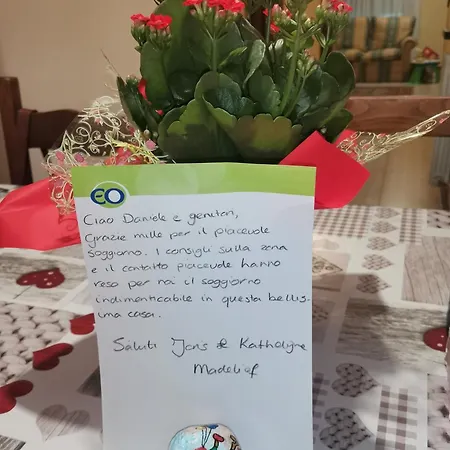 EO
Ciao Daniele e genitori,
Grazie mille per il piacevole
soggiorno. I consigli sulla zona
e il contatto piacevole hanno
reso per noi il soggiorno
indimenticabile in questa bellis-
ima casa.
Saluti Jens & Katholijne
Madelief